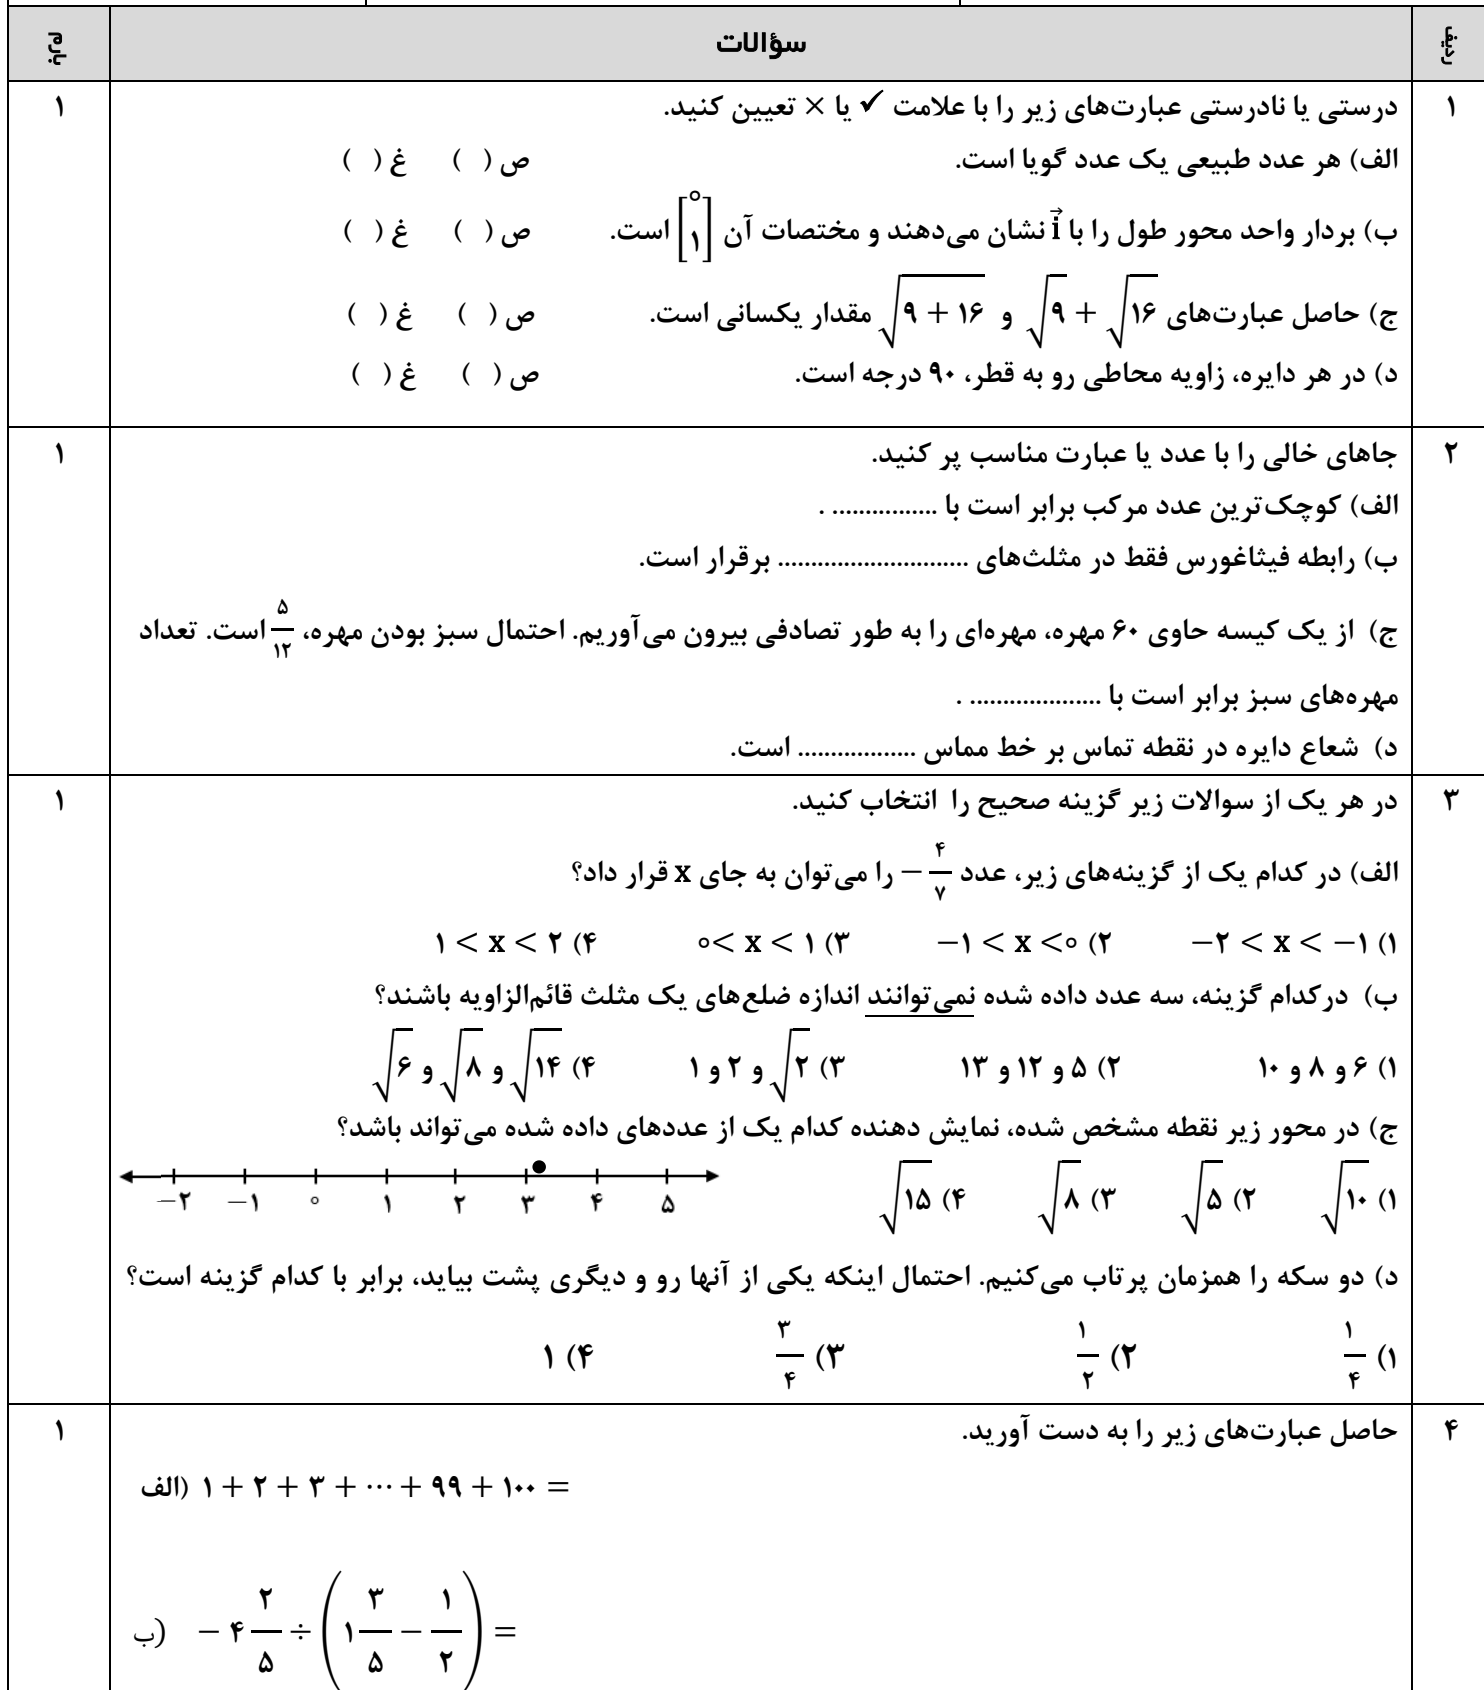 ردیف سؤالات بارم
۱ درستی یا نادرستی عبارت‌های زیر را با علامت ✓ یا × تعیین کنید. ۱
الف) هر عدد طبیعی یک عدد گویا است. ص ( ) غ ( )
ب) بردار واحد محور طول را با i⃗ نشان می‌دهند و مختصات آن [۰ ۱] است. ص ( ) غ ( )
ج) حاصل عبارت‌های √۹ + √۱۶ و √(۹ + ۱۶) مقدار یکسانی است. ص ( ) غ ( )
د) در هر دایره، زاویه محاطی رو به قطر، ۹۰ درجه است. ص ( ) غ ( )
۲ جاهای خالی را با عدد یا عبارت مناسب پر کنید. ۱
الف) کوچک‌ترین عدد مرکب برابر است با ................ .
ب) رابطه فیثاغورس فقط در مثلث‌های ............................. برقرار است.
ج) از یک کیسه حاوی ۶۰ مهره، مهره‌ای را به طور تصادفی بیرون می‌آوریم. احتمال سبز بودن مهره، ۵/۱۲ است. تعداد
مهره‌های سبز برابر است با .................... .
د) شعاع دایره در نقطه تماس بر خط مماس .................. است.
۳ در هر یک از سوالات زیر گزینه صحیح را انتخاب کنید. ۱
الف) در کدام یک از گزینه‌های زیر، عدد −۴/۷ را می‌توان به جای x قرار داد؟
۱) −۲ < x < −۱ ۲) −۱ < x < ۰ ۳) ۰ < x < ۱ ۴) ۱ < x < ۲
ب) درکدام گزینه، سه عدد داده شده نمی‌توانند اندازه ضلع‌های یک مثلث قائم‌الزاویه باشند؟
۱) ۶ و ۸ و ۱۰ ۲) ۵ و ۱۲ و ۱۳ ۳) √۲ و ۲ و ۱ ۴) √۱۴ و √۸ و √۶
ج) در محور زیر نقطه مشخص شده، نمایش دهنده کدام یک از عددهای داده شده می‌تواند باشد؟
۱) √۱۰ ۲) √۵ ۳) √۸ ۴) √۱۵
−۲ −۱ ۰ ۱ ۲ ۳ ۴ ۵
د) دو سکه را همزمان پرتاب می‌کنیم. احتمال اینکه یکی از آنها رو و دیگری پشت بیاید، برابر با کدام گزینه است؟
۱) ۱/۴ ۲) ۱/۲ ۳) ۳/۴ ۴) ۱
۴ حاصل عبارت‌های زیر را به دست آورید. ۱
الف) ۱ + ۲ + ۳ + ⋯ + ۹۹ + ۱۰۰ =
ب) −۴ ۲/۵ ÷ (۱ ۳/۵ − ۱/۲) =